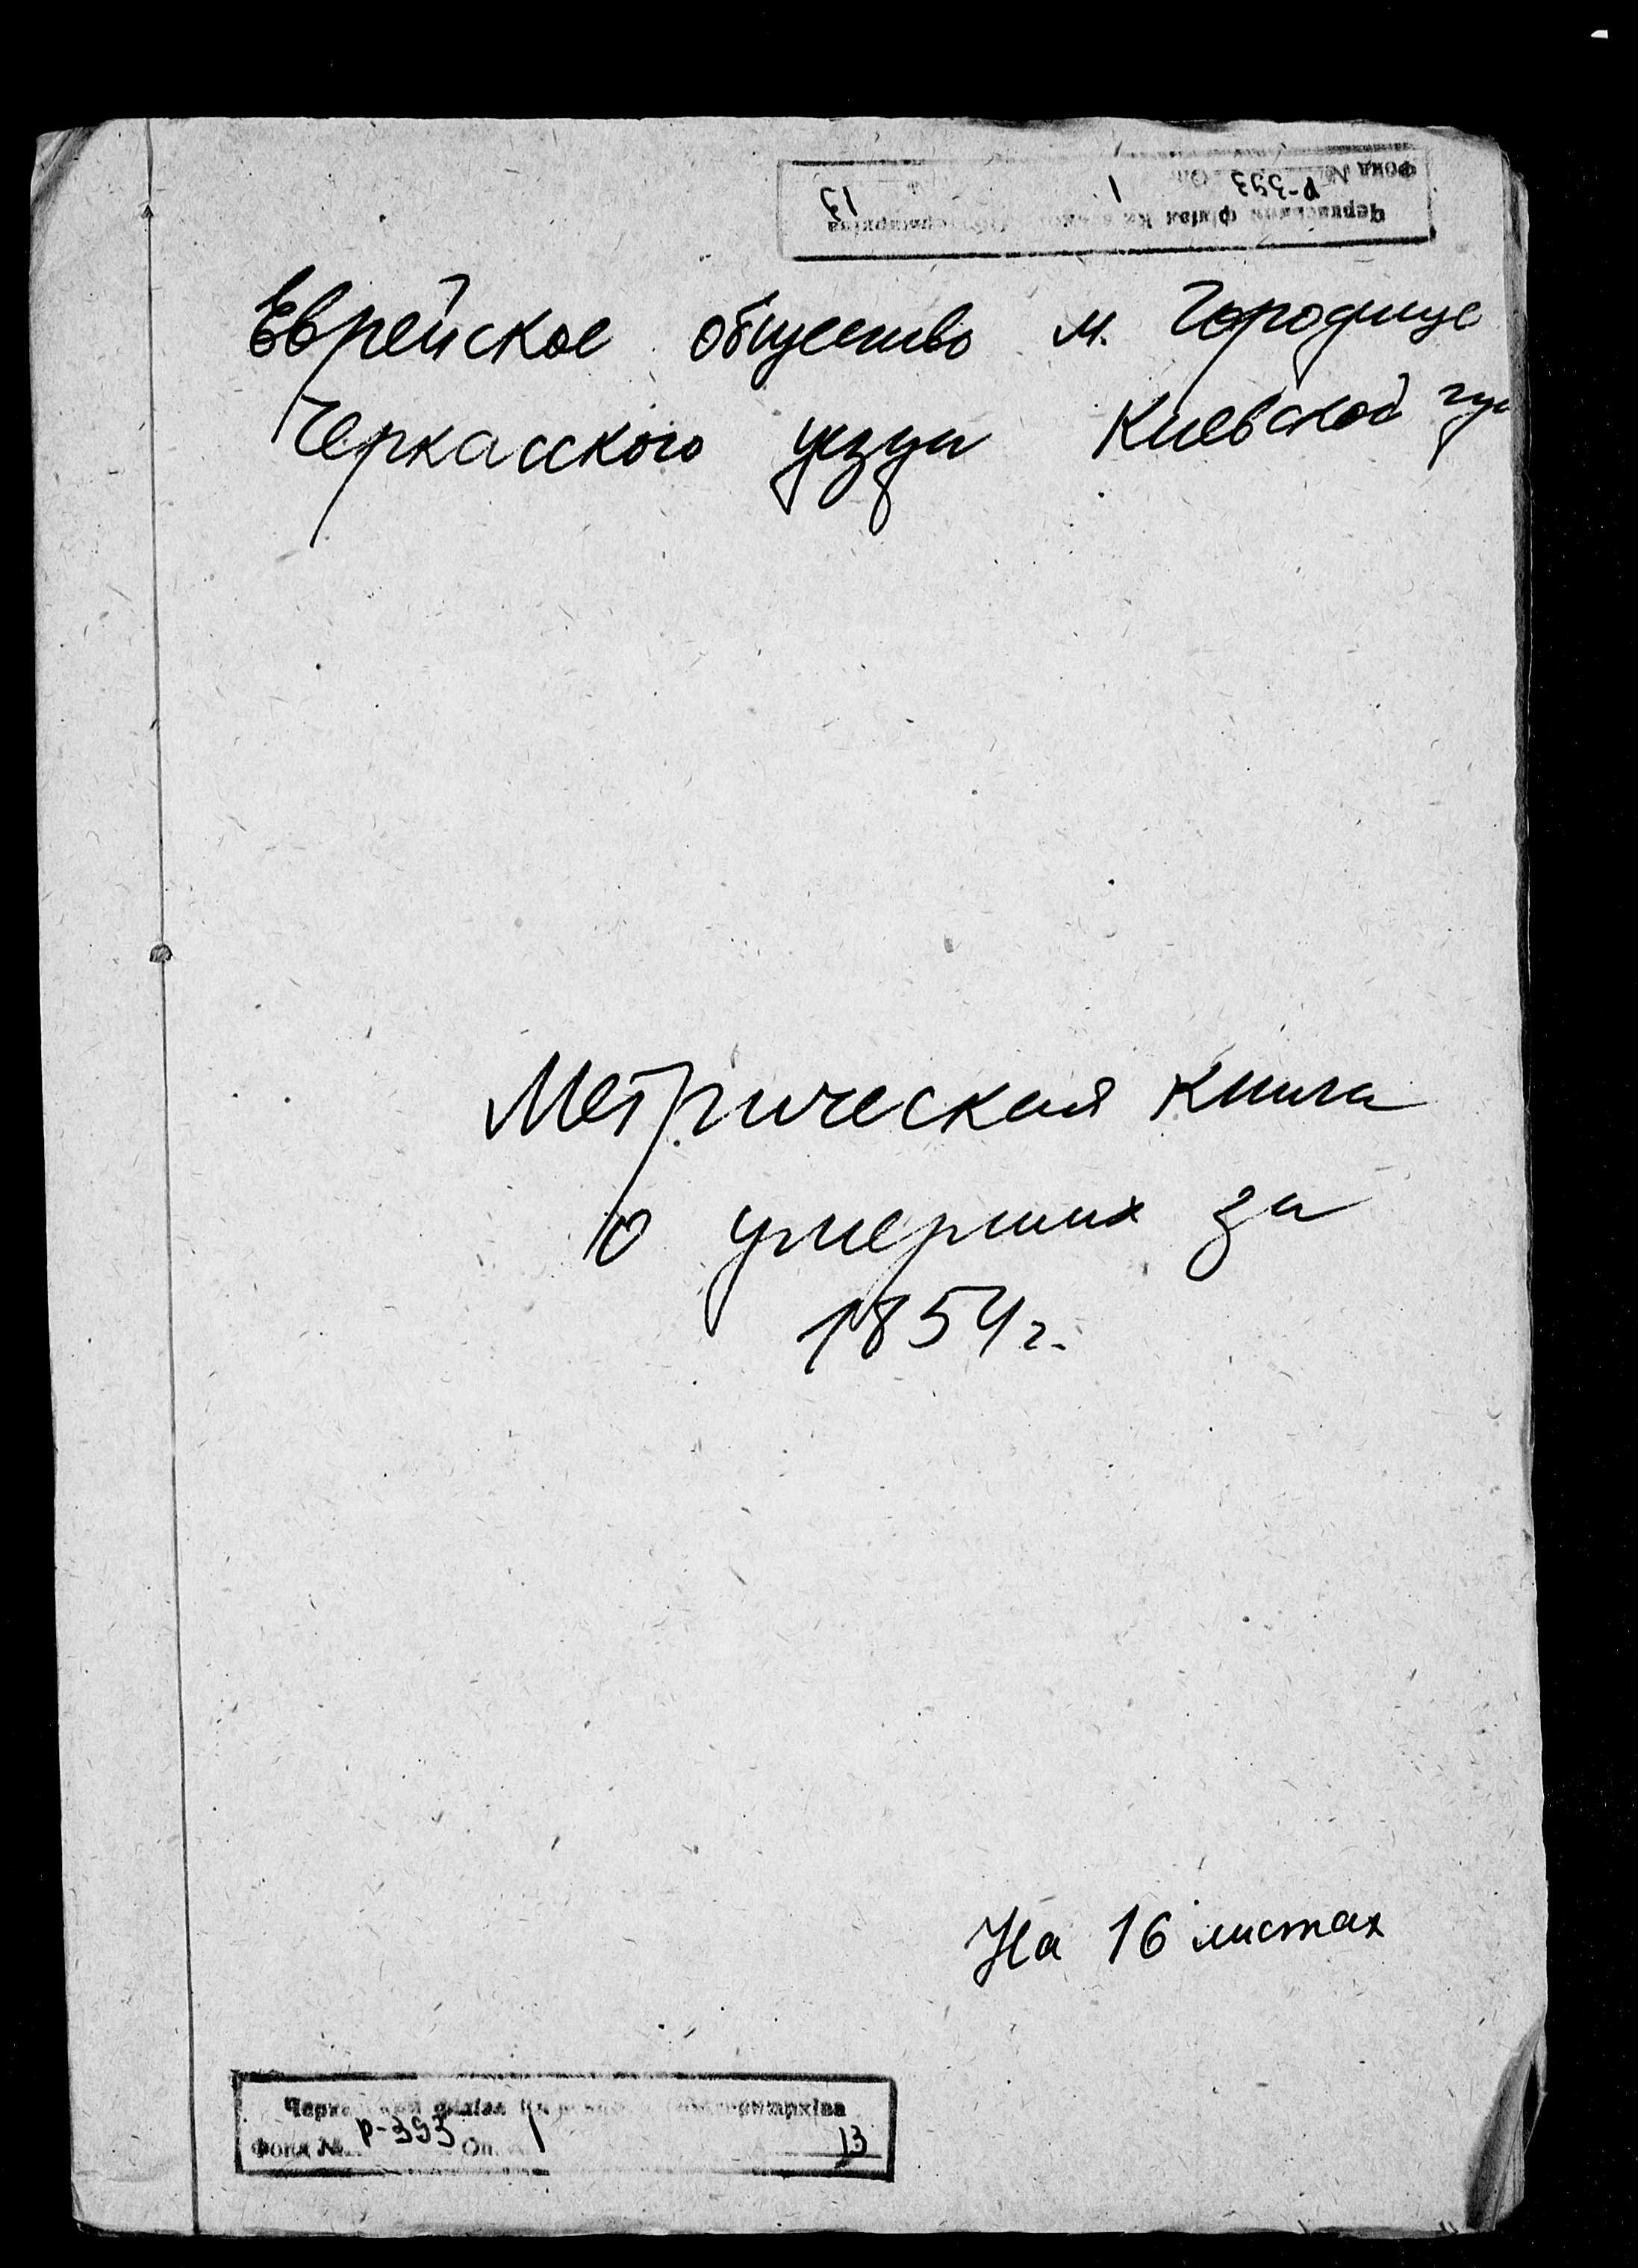 Фонд № Р-393 Оп. 1 13
Еврейское общество м. Городище
Черкасского уезда Киевской гу
Метрическая книга
о умерших за
1854 г.
На 16 листах
філіал
Фонд № Р-393 Оп. 1 13